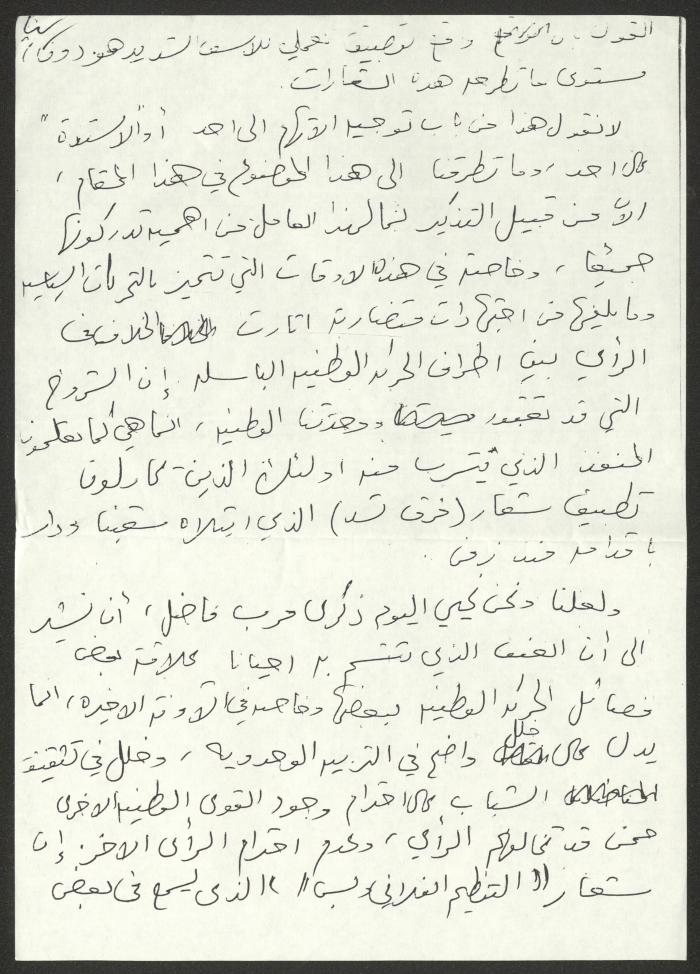 القول بأن وقع تطبيق عملي للاسف الشديد هو دون
مستوى ما تطرحه هذه الشعارات.
لا نقول هذا من باب توجيه الاتهام الى احد أو "الاستذة"
على احد، وما تطرقنا الى هذا الموضوع في هذا المقام،
الا من قبيل التذكير لما لهذا العامل من اهمية تدركونها
جميعًا، وخاصة في هذه الاوقات التي تتميز بالتحركات السياسيه
وما يليها من اجتهادات متضاربة اثارت خلافات
الرأي بين اطراف الحركه الوطنيه الباسله إن الشروخ
التي قد تعتور وحدتنا الوطنيه، انما هي كما تعلمون
المنفذ الذي يتسرب منه اولئك الذين يحاولون
تطبيق شعار (فرق تسد) الذي ابتلاه شعبنا وداس
باقدامه منذ زمن.
ولعلنا ونحن نحيي اليوم ذكرى حرب فاضل، أن نشير
الى أن العنف الذي تتسم به احيانا علاقة بعض
فصائل الحركه الوطنيه ببعضها وخاصه في الآونة الاخيره، انما
يدل على خلل واضح في التربيه الوحدويه، وخلل في تثقيف
الشباب على احترام وجود القوى الوطنيه الاخرى
ممن قد تخالفهم الرأي، وعدم احترام الرأى الاخر. إن
شعار "التنظيم الفلاني وبس"، الذى يسمع في بعض